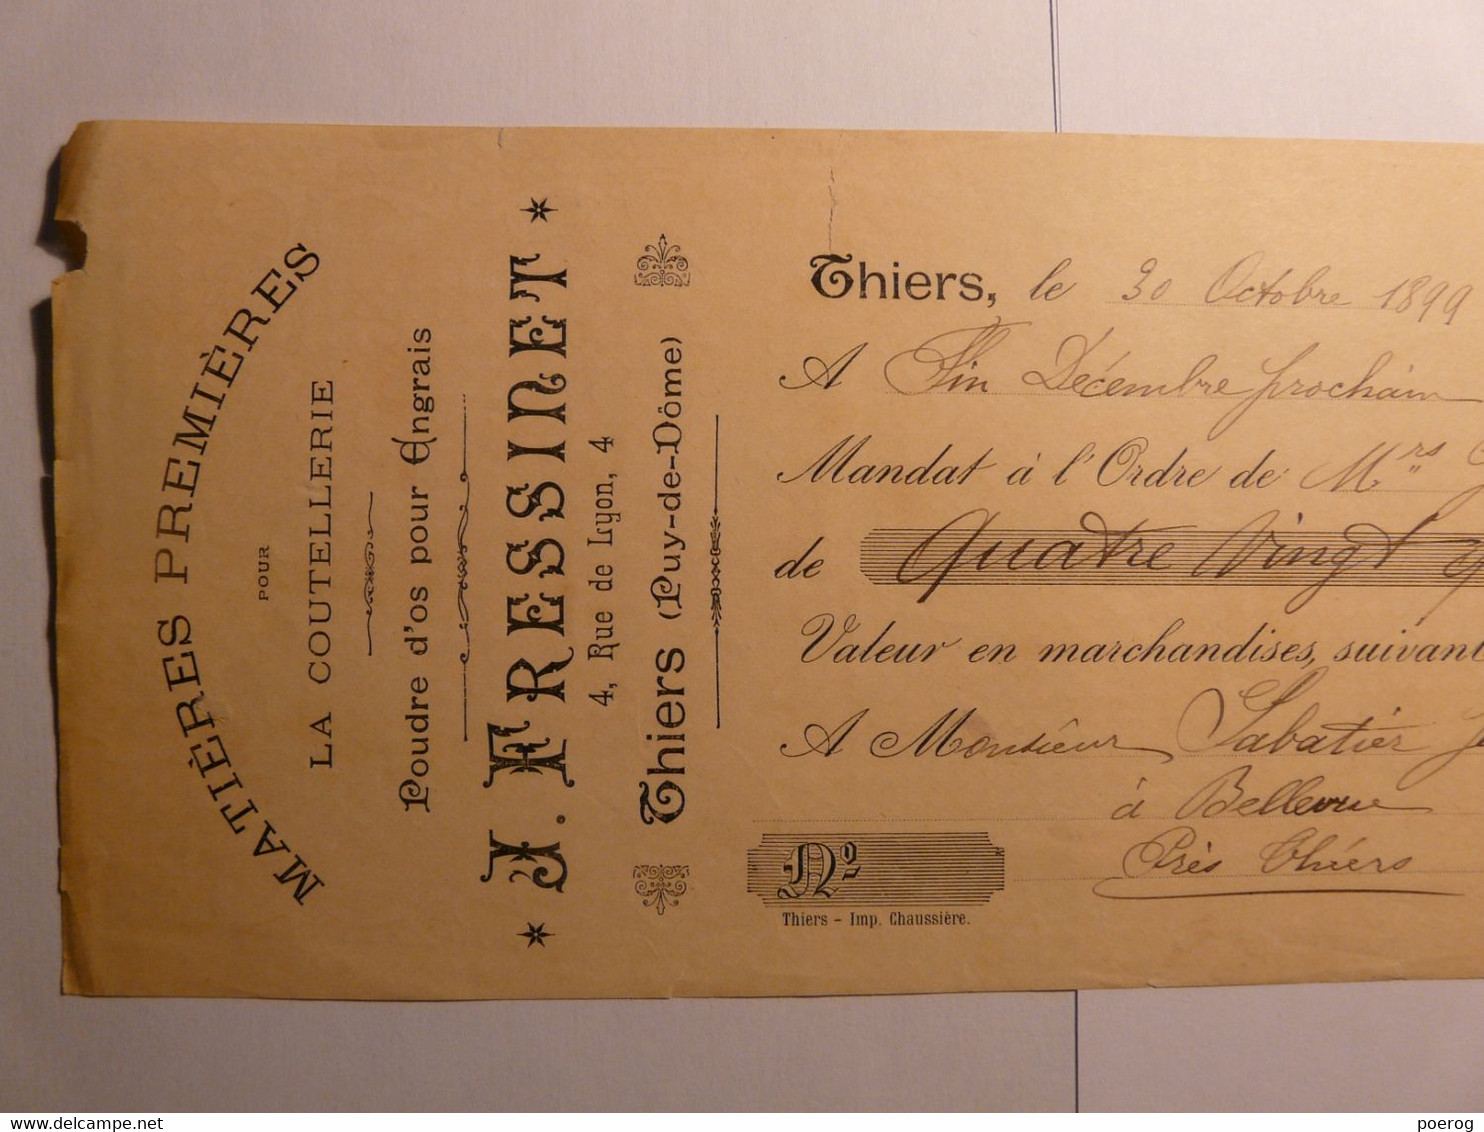 MATIÈRES PREMIÈRES
POUR
LA COUTELLERIE
Poudre d'os pour Engrais
J. FRESSINET
4, Rue de Lyon, 4
Thiers (Puy-de-Dôme)
Thiers, le 30 Octobre 1899
A Fin Décembre prochain
Mandat à l'Ordre de Mrs
de Quatre Vingt
Valeur en marchandises, suivant
A Monsieur Sabatier
à Bellevue
Près Thiers
No
Thiers - Imp. Chaussière.
delcampe.net
poerog